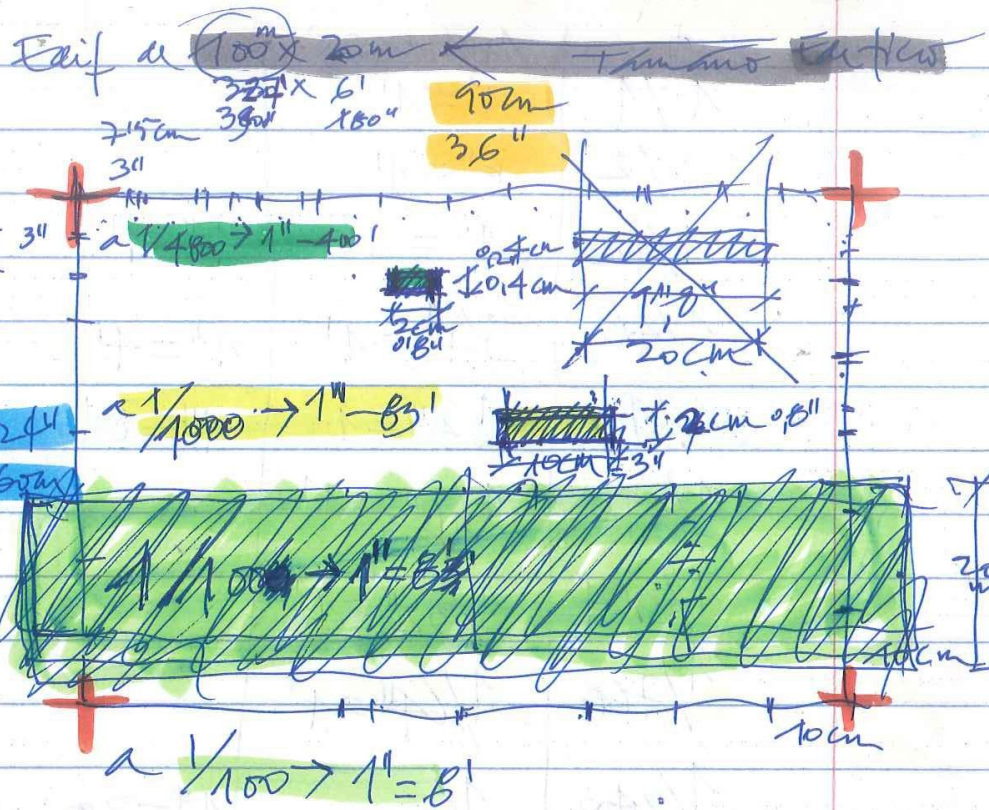 Edif de 100m x 20m ← Tamaño Edificio
x 6'
90cm
380" x80"
7'5cm
3,6"
3"
3"
a 1/4800 → 1" - 400'
0,4cm
0,4cm
2cm
0'8"
20cm
24"
a 1/1000 → 1" - 83'
0,8"
10cm = 3"
60cm
1/100 → 1" = 8'
10cm
10cm
a 1/100 → 1" = 8'